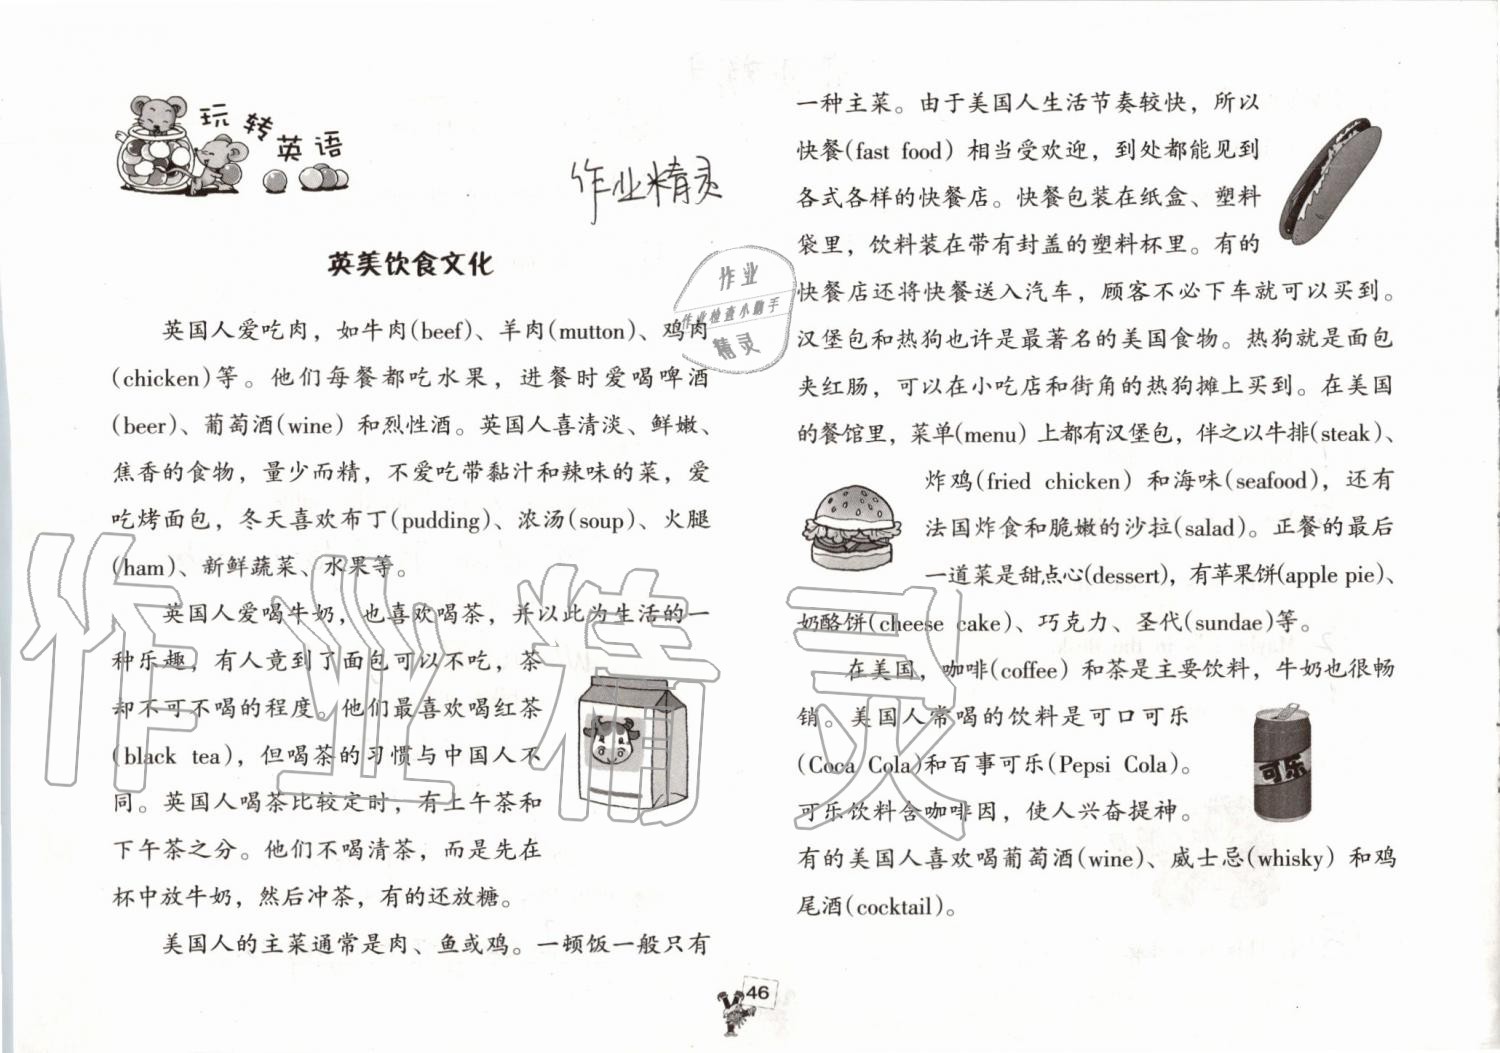 玩转英语
作业精灵
英美饮食文化
英国人爱吃肉，如牛肉(beef)、羊肉(mutton)、鸡肉
(chicken)等。他们每餐都吃水果，进餐时爱喝啤酒
(beer)、葡萄酒(wine) 和烈性酒。英国人喜清淡、鲜嫩、
焦香的食物，量少而精，不爱吃带黏汁和辣味的菜，爱
吃烤面包，冬天喜欢布丁(pudding)、浓汤(soup)、火腿
(ham)、新鲜蔬菜、水果等。
英国人爱喝牛奶，也喜欢喝茶，并以此为生活的一
种乐趣，有人竟到了面包可以不吃，茶
却不可不喝的程度。他们最喜欢喝红茶
(black tea)，但喝茶的习惯与中国人不
同。英国人喝茶比较定时，有上午茶和
下午茶之分。他们不喝清茶，而是先在
杯中放牛奶，然后冲茶，有的还放糖。
美国人的主菜通常是肉、鱼或鸡。一顿饭一般只有
一种主菜。由于美国人生活节奏较快，所以
快餐(fast food) 相当受欢迎，到处都能见到
各式各样的快餐店。快餐包装在纸盒、塑料
袋里，饮料装在带有封盖的塑料杯里。有的
快餐店还将快餐送入汽车，顾客不必下车就可以买到。
汉堡包和热狗也许是最著名的美国食物。热狗就是面包
夹红肠，可以在小吃店和街角的热狗摊上买到。在美国
的餐馆里，菜单(menu) 上都有汉堡包，伴之以牛排(steak)、
炸鸡(fried chicken) 和海味(seafood)，还有
法国炸食和脆嫩的沙拉(salad)。正餐的最后
一道菜是甜点心(dessert)，有苹果饼(apple pie)、
奶酪饼(cheese cake)、巧克力、圣代(sundae)等。
在美国，咖啡(coffee) 和茶是主要饮料，牛奶也很畅
销。美国人常喝的饮料是可口可乐
(Coca Cola)和百事可乐(Pepsi Cola)。
可乐饮料含咖啡因，使人兴奋提神。
有的美国人喜欢喝葡萄酒(wine)、威士忌(whisky) 和鸡
尾酒(cocktail)。
可乐
作业
作业检查小助手
精灵
作业精灵
46